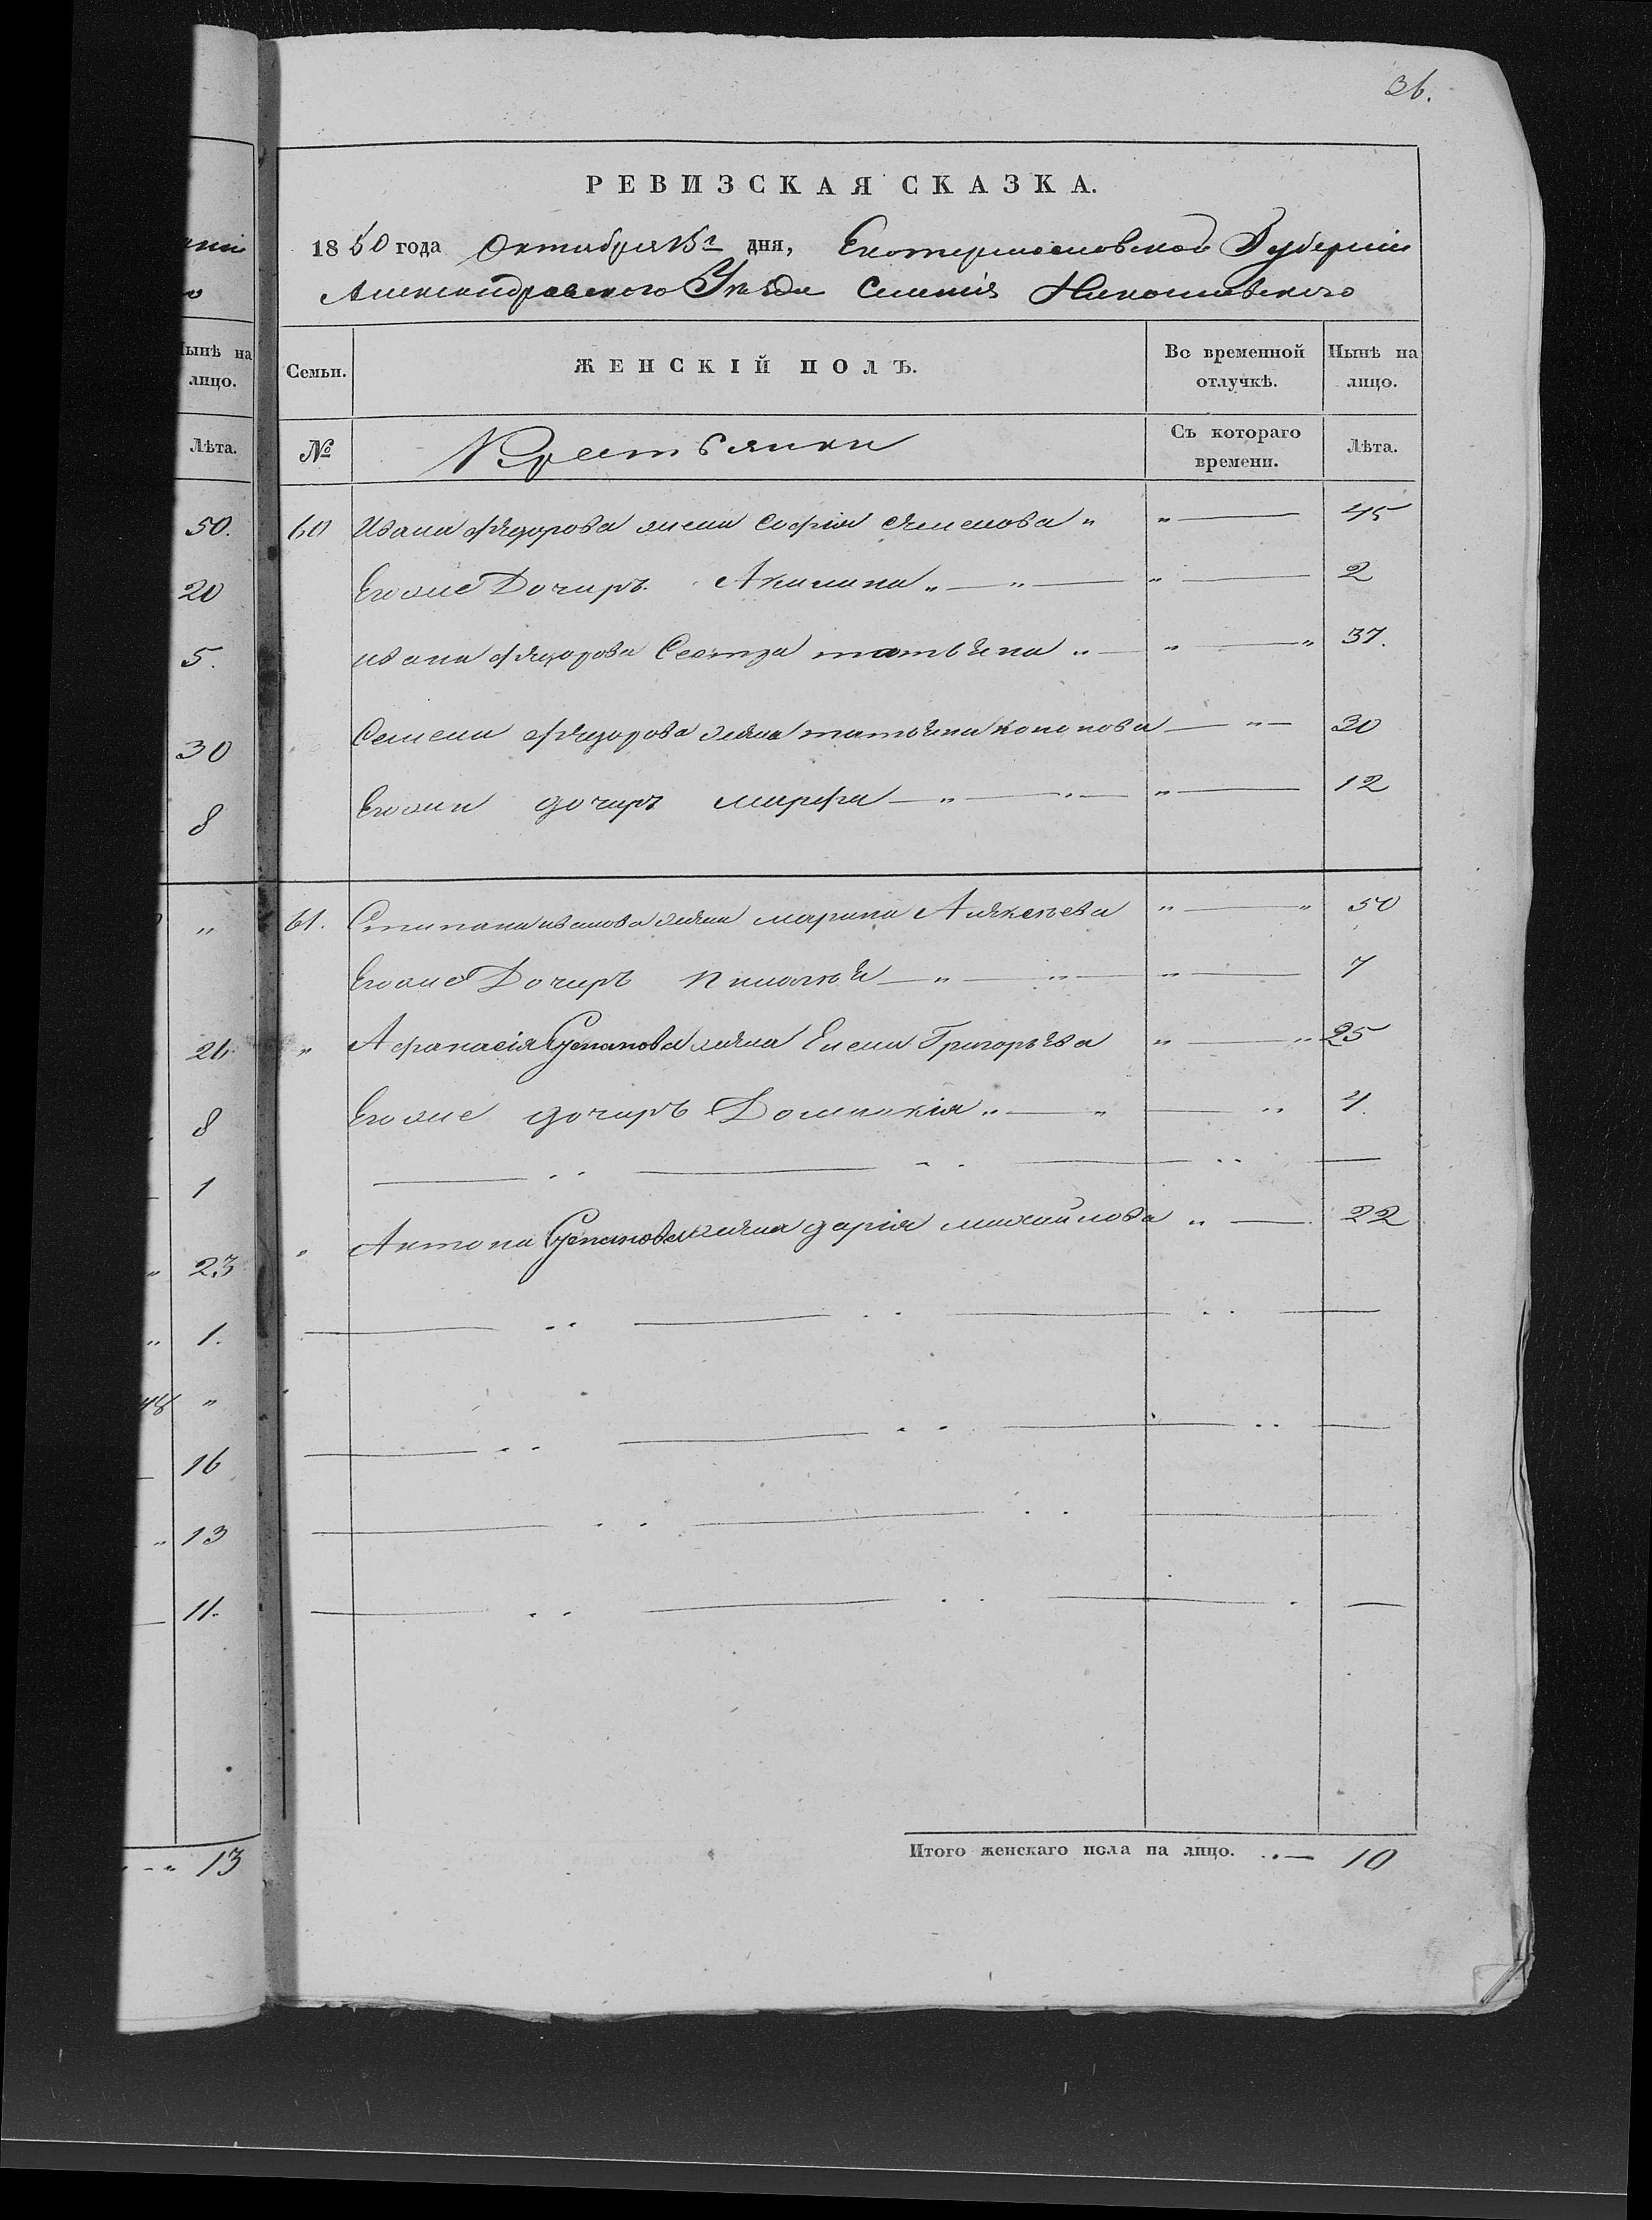 36.
РЕВИЗСКАЯ СКАЗКА.
1850 года Октября 15го дня, Екатеринославской Губернии
Александравского Уезда Селенія Николаевского
Семьи. ЖЕНСКІЙ ПОЛЪ. Во временной отлучкѣ. Нынѣ на лицо.
№ Крестьянки Съ котораго времени. Лѣта.
60 Ивана Фядорова жена Софія Сяменова " " — 45
Егоже Дочиръ Акилина " — " — " — 2
ивана Фядорова Сестра татьяна " — " — " 37.
Семена Фядорова жяна татьяна кононова — " — 30
Егожи дочиръ марфа — " — " — " — 12
61. Стипана иванова жяна марина Аляксѣева " — " 50
Егоже Дочиръ — " — " — " — 7
" Афанасія Стипанова жяна Елена Григорьява " — " 25
Егоже дочиръ Домникія " — " — " 4.
" Антона Стипанова жяна дарія михайлова " — 22
Итого женскаго пола на лицо. " — 10
нынѣ на лицо.
Лѣта.
50.
20
5.
30
8
"
26.
8
1
" 23
" 1.
48 "
16
" 13
11.
" 13